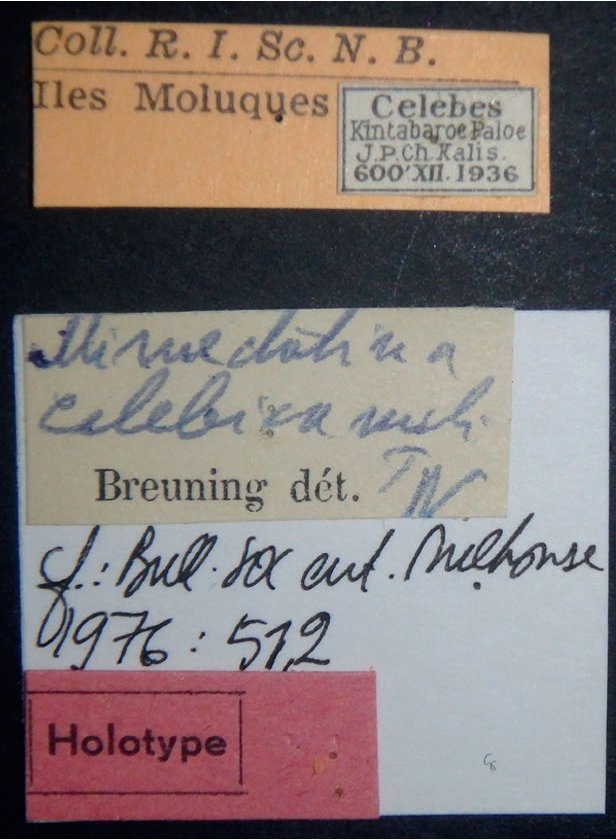 Coll. R. I. Sc. N. B.
Iles Moluques
Celebes
Kintabaroe Paloe
J.P.Ch. Kalis.
600' XII. 1936
Mimectatina
celebica mih
Breuning dét. TN
cf.: Bull. Soc ent. Mulhouse
1976: 51,2
Holotype